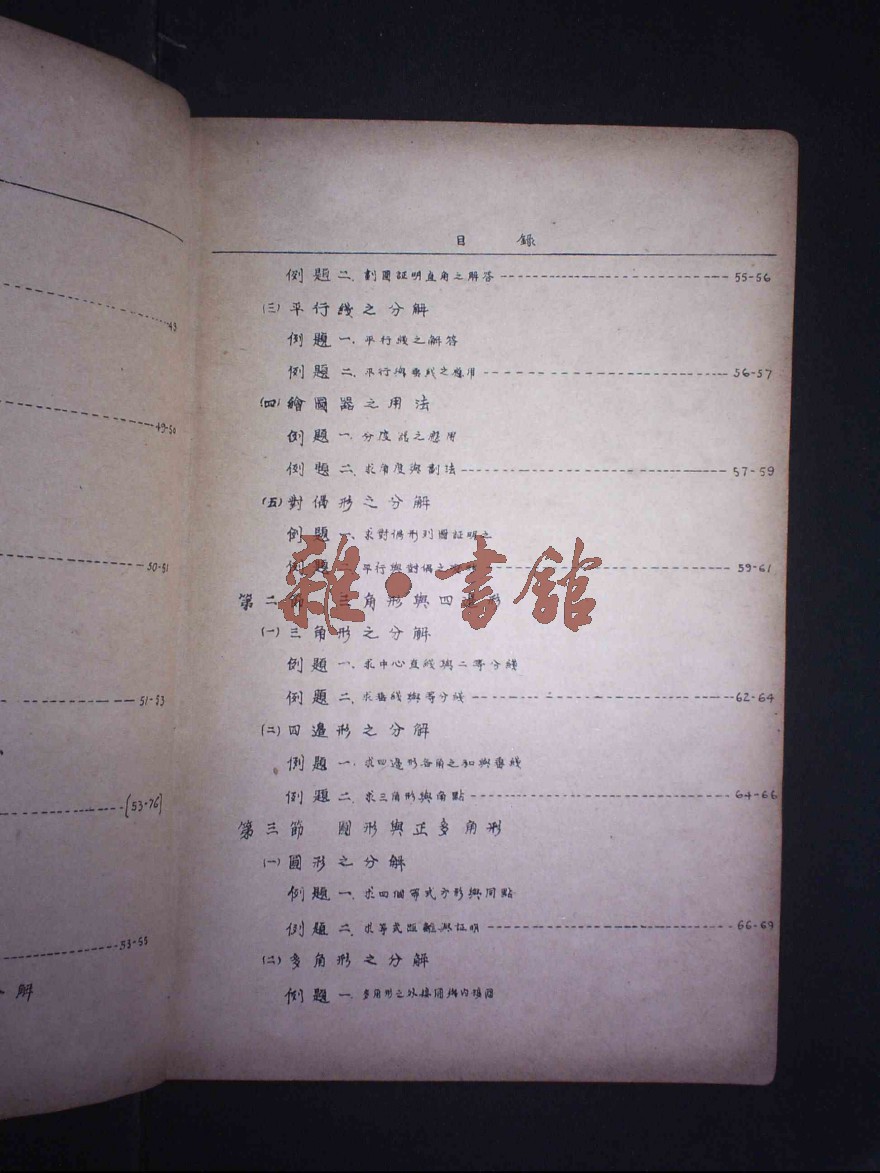 43
49-50
50-51
51-53
[53-76]
53-55
解
目 錄
例題二、劃圖証明直角之解答 55-56
(三)平行綫之分解
例題一、平行綫之解答
例題二、平行與垂綫之應用 56-57
(四)繪圖器之用法
例題一、分度 之應用
例題二、求角度與劃法 57-59
(五)對偶形之分解
例題一、求對偶形列圖証明之
例題二、平行與對偶之 59-61
雜·書館
第二節 三角形與四邊形
(一)三角形之分解
例題一、求中心直綫與二等分綫
例題二、求垂綫與等分綫 62-64
(二)四邊形之分解
例題一、求四邊形各角之和與垂綫
例題二、求三角形與角點 64-66
第三節 圓形與正多角形
(一)圓形之分解
例題一、求四個等式方形與同點
例題二、求等式距離與証明 66-69
(二)多角形之分解
例題一、多角形之外接圓與內 圓